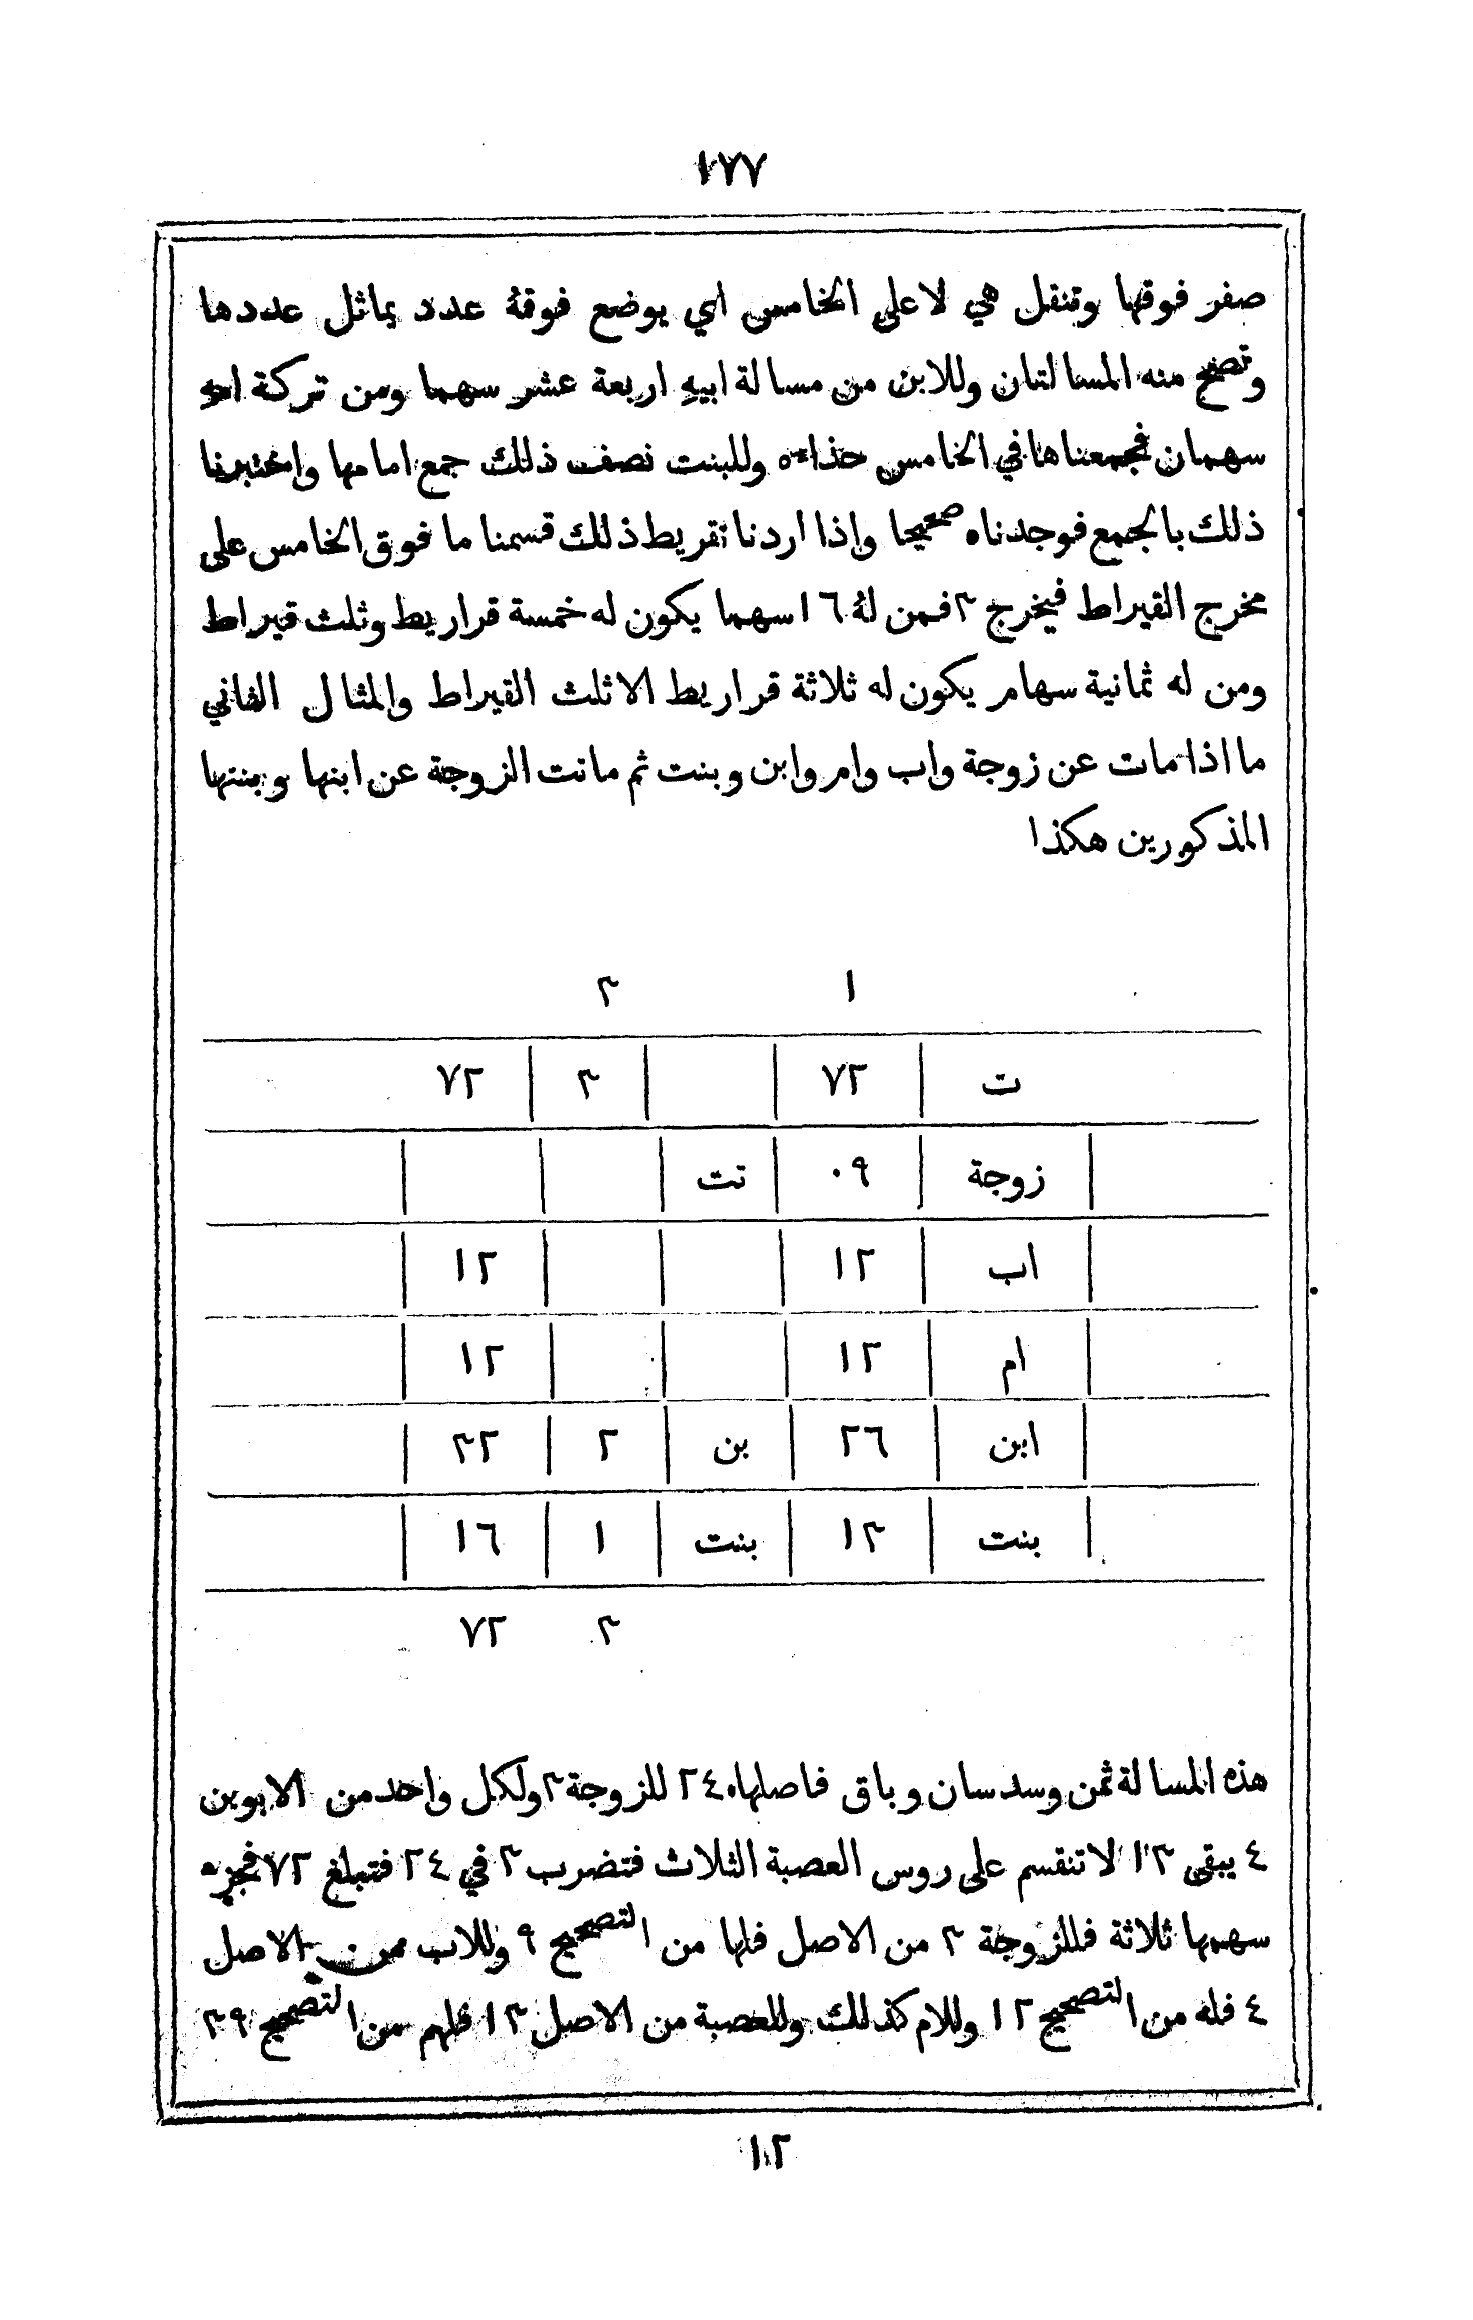 ١٧٧
صفر فوقها وتنقل هي لاعلى الخامس اي يوضع فوقهٔ عدد يماثل عددها
وتصحح منه المسالتان وللابن من مسالة ابيهِ اربعة عشر سهما ومن تركة امه
سهمان فجمعناها في الخامس حذاءه وللبنت نصف ذلك جمع امامها واختبرنا
ذلك بالجمع فوجدناه صحيحا واذا اردنا تقريط ذلك قسمنا ما فوق الخامس على
مخرج القيراط فيخرج ٣ فمن لهٔ ١٦ سهما يكون له خمسة قراريط وثلث قيراط
ومن له ثمانية سهام يكون له ثلاثة قراريط الا ثلث القيراط والمثال الثاني
ما اذا مات عن زوجة واب وام وابن وبنت ثم ماتت الزوجة عن ابنها وبنتها
المذكورين هكذا
١ ٣
ت ٧٢ ٣ ٧٢
زوجة ٠٩ تت
اب ١٢ ١٢
ام ١٢ ١٢
ابن ٢٦ بن ٢ ٣٢
بنت ١٣ بنت ١ ١٦
٣ ٧٢
هذه المسالة ثمن وسدسان وباق فاصلها ٢٤ للزوجة ٣ ولكل واحد من الابوين
٤ يبقى ١٣ لا تنقسم على روس العصبة الثلاث فتضرب ٣ في ٢٤ فتبلغ ٧٢ فجزء
سهمها ثلاثة فللزوجة ٣ من الاصل فلها من التصحيح ٩ وللاب من الاصل
٤ فله من التصحيح ١٢ وللام كذلك وللعصبة من الاصل ١٣ فلهم من التصحيح ٣٩
١٢